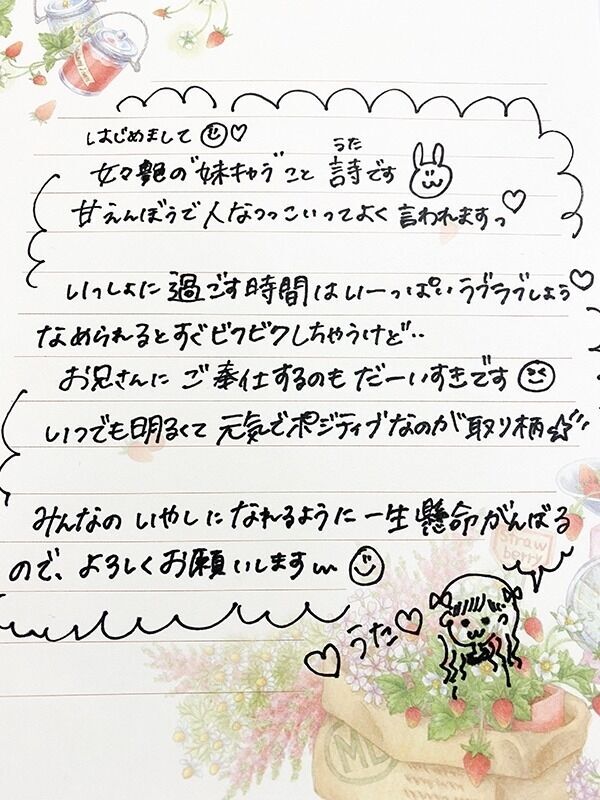 はじめまして♡
女々艶の"妹キャラ"こと 詩です
うた
甘えんぼうで人なつっこいってよく言われますっ♡
いっしょに過ごす時間はいーっぱいラブラブしよう♡
なめられるとすぐビクビクしちゃうけど‥
お兄さんにご奉仕するのもだーいすきです
いつでも明るくて元気でポジティブなのが取り柄☆
みんなのいやしになれるように一生懸命がんばる
ので、よろしくお願いします
♡うた♡
Straw
berry